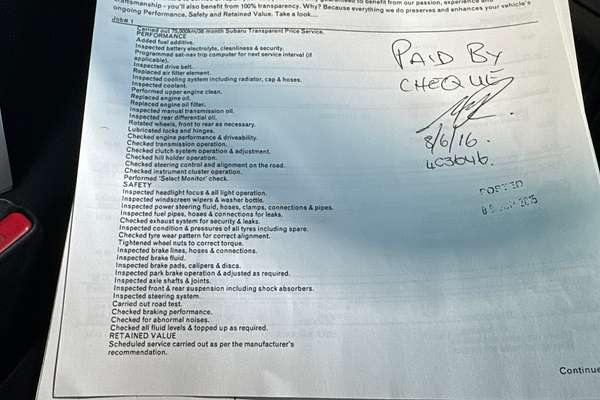 craftsmanship - you'll also benefit from 100% transparency. Why? Because everything we do preserves and enhances your vehicle's
ongoing Performance, Safety and Retained Value. Take a look....
Job# 1
Carried out 75,000km/36 month Subaru Transparent Price Service.
PERFORMANCE
Added fuel additive.
Inspected battery electrolyte, cleanliness & security.
Programmed sat-nav trip computer for next service interval (if
applicable).
Inspected drive belt.
Replaced air filter element.
Inspected cooling system including radiator, cap & hoses.
Inspected coolant.
Performed upper engine clean.
Replaced engine oil.
Replaced engine oil filter.
Inspected manual transmission oil.
Inspected rear differential oil.
Rotated wheels, front to rear as necessary.
Lubricated locks and hinges.
Checked engine performance & driveability.
Checked transmission operation.
Checked clutch system operation & adjustment.
Checked hill holder operation.
Checked steering control and alignment on the road.
Checked instrument cluster operation.
Performed 'Select Monitor' check.
SAFETY
Inspected headlight focus & all light operation.
Inspected windscreen wipers & washer bottle.
Inspected power steering fluid, hoses, clamps, connections & pipes.
Inspected fuel pipes, hoses & connections for leaks.
Checked exhaust system for security & leaks.
Inspected condition & pressures of all tyres including spare.
Checked tyre wear pattern for correct alignment.
Tightened wheel nuts to correct torque.
Inspected brake lines, hoses & connections.
Inspected brake fluid.
Inspected brake pads, calipers & discs.
Inspected park brake operation & adjusted as required.
Inspected axle shafts & joints.
Inspected front & rear suspension including shock absorbers.
Inspected steering system.
Carried out road test.
Checked braking performance.
Checked for abnormal noises.
Checked all fluid levels & topped up as required.
RETAINED VALUE
Scheduled service carried out as per the manufacturer's
recommendation.
PAID BY
CHEQUE
8/6/16.
403646.
POSTED
Continue